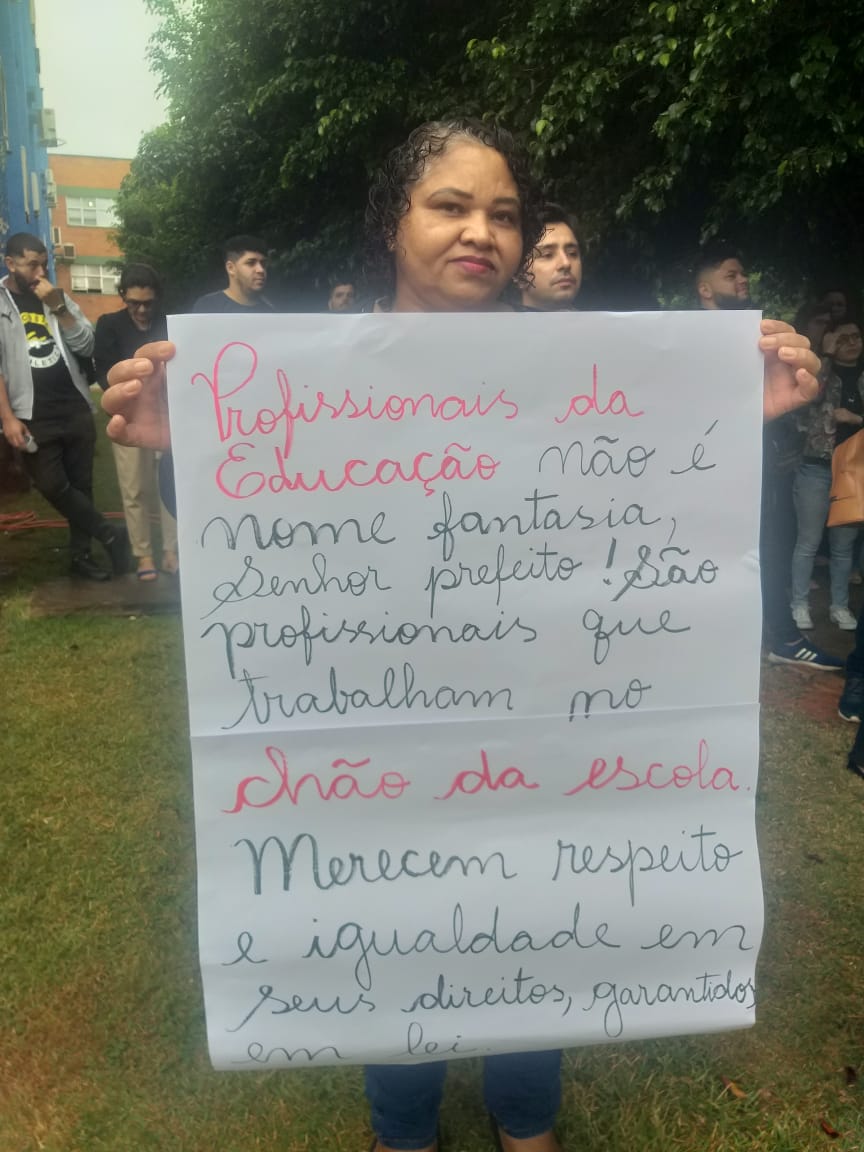 Profissionais da
Educação não é
nome fantasia,
Senhor prefeito! São
profissionais que
trabalham no
chão da escola.
Merecem respeito
e igualdade em
seus direitos, garantidos
em lei.